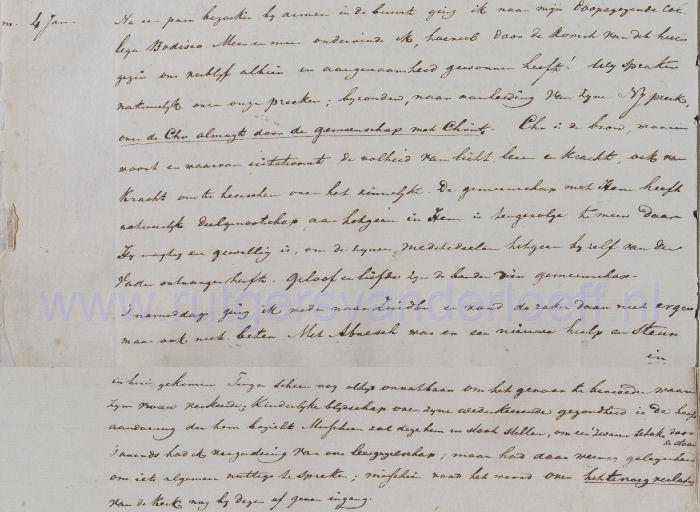 m. 4 Jan. Na een paar bezoeken bij armen in de buurt ging ik naar mijn doopsgezinde col-
lega Bodisco. Meer en meer ondervinde ik, hoeveel door de komst van dit
gezin ons verblijf alhier in aangenaamheid gewonnen heeft! Wij spraken
natuurlijk over onze preeken; bijzonder, naar aanleiding van zijne Nj preek,
over de Chr almagt door de gemeenschap met Christ. Chr is de bron, waarin
woont en waarvan uitstroomt de volheid van licht, leven en kracht, ook van
kracht om te heerschen over het zinnelijke. De gemeenschap met Hem heeft
natuurlijk deelgenootschap aan hetgeen in Hem is tengevolge te meer daar
Hij magtig en gewillig is, om de zijnen mededeelen hetgeen hij zelf van den
Vader ontvangen heeft. Geloof en liefde zijn de banden dier gemeenschap.
's namiddags ging ik weder naar en vond de zaken daar niet erger
maar ook niet beter. Met was en een nieuwe hulp en steun
in
in huis gekomen. scheen nog altijd onvatbaar om het gevaar te beseffen waarin
zijne vrouw verkeerde; kinderlijke blijdschap over zijne wederkeerende gezondheid is de hoofd
aandoening die hem bezielt. Misschien zal deze hem in staat stellen, om een zwaren schok door
te staan
's avonds had ik vergadering van ons leesgezelschap; maar had daar weinig gelegenheid
om iets algemeen nuttigs te spreken; misschien vond het woord over het terugverlangen
van de kerk nog bij dezen of genen ingang.
www.rutgersvanderloeff.nl